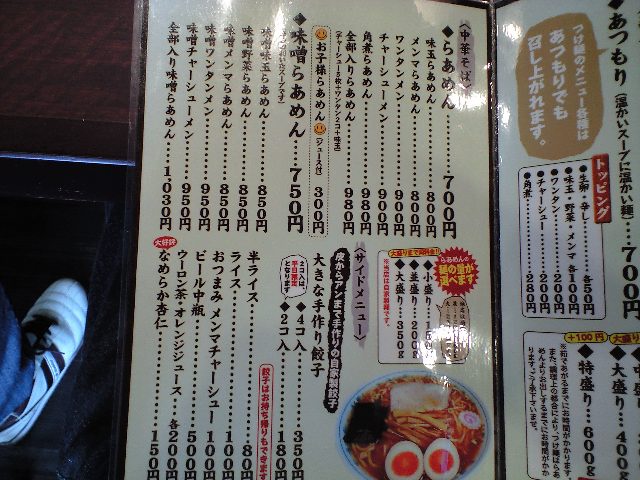 ◆あつもり（温かいスープに温かい麺）…700円
つけ麺のメニュー各種は
あつもりでも
召し上がれます。
トッピング
●生卵・辛し…各50円
●味玉・野菜・メンマ 各100円
●ワンタン……200円
●チャーシュー…200円
●角煮………280円
＋100円
大盛り…400g
◆特盛り…600g
〈中華そば〉
◆らあめん………700円
味玉らあめん………800円
メンマらあめん………800円
ワンタンメン………900円
チャーシューメン………900円
角煮らあめん………980円
全部入りらあめん………980円
（チャーシュー5枚+ワンタン2コ+味玉）
お子様らあめん（ジュース付）300円
◆味噌らあめん…750円
味噌味玉らあめん………850円
味噌野菜らあめん………850円
味噌メンマらあめん………850円
味噌ワンタンメン………950円
味噌チャーシューメン………950円
全部入り味噌らあめん…1,030円
らあめんの
麺の量が
選べます
大盛りまで同料金!!
◆小盛り…150g
◆並盛り…200g
◆大盛り…350g
※当店は自家製麺です。
〈サイドメニュー〉
皮からアンまで手作りの自家製餃子
大きな手作り餃子
◆4コ入………350円
◆2コ入………180円
2コ入は
平日限定
となります
餃子はお持ち帰りもできます
半ライス………80円
ライス………100円
おつまみ メンマチャーシュー 100円
ビール中瓶………500円
ウーロン茶・オレンジジュース…各200円
大好評
なめらか杏仁………150円